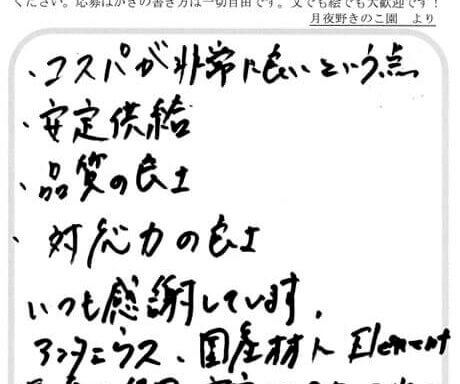 ください。応募はがきの書き方は一切自由です。文でも絵でも大歓迎です！
月夜野きのこ園　より
・コスパが非常に良いという点
・安定供給
・品質の良さ
・対応力の良さ
いつも感謝しています。
アンタエウス、国産材人 Element